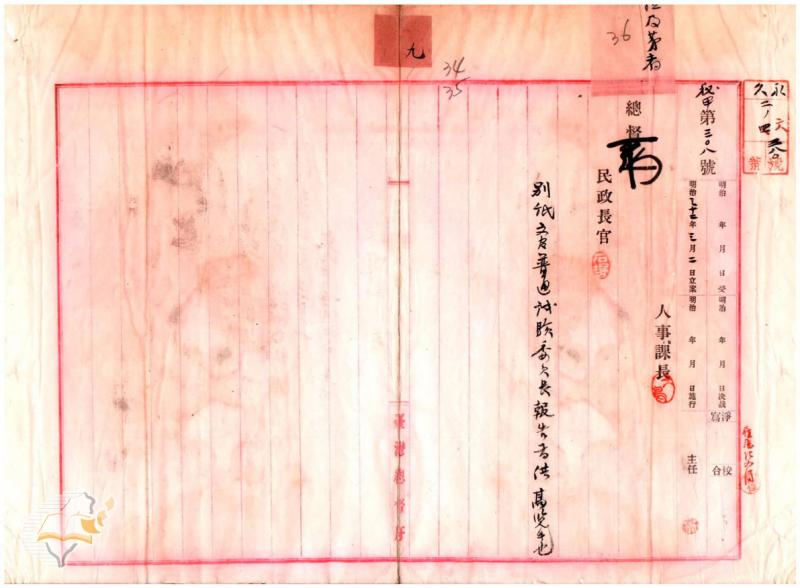 永久
二ノ四
文
號
秘甲第三〇八號
明治 年 月 日受
明治 年 月 日決裁
淨寫
校合
明治三十二年三月二日立案
明治 年 月 日施行
主任
人事課長
總督
民政長官
別紙
普通試験委員長報告
供高覽
臺灣總督府
九
36
34
35